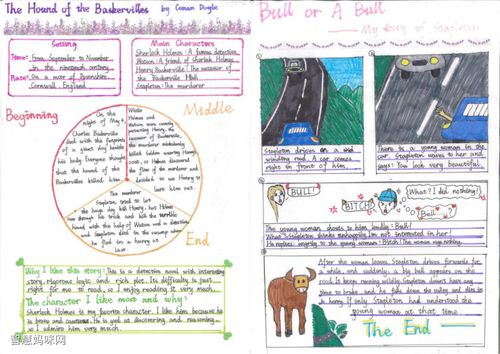 The Hound of the Baskervilles by Conan Doyle
Setting
Time: From September to November
in the nineteenth century
Place: On a moor of Devonshire
Cornwall, England
Main Characters
Sherlock Holmes: A famous detective
Watson: A friend of Sherlock Holmes
Henry Baskerville: The successor of
the Baskerville Hall
Stapleton: The murderer
Beginning
On the
night of May 4,
Charles Baskerville
died with the footprints
of a giant dog beside
his body. Everyone thought
that the hound of the
Baskervilles killed him.
Middle
While
Holmes and
Watson were secretly
protecting Henry, the
successor of Baskerville,
the murderer mistakenly
killed Selden wearing Henry's
coat, so Holmes discovered
the plan of the murderer and
decided to use Henry to
lure him out.
End
The murderer
Stapleton tried to let
the huge dog kill Henry, but Holmes
saw through his trick and kill the terrible
hound with the help of Watson
and Stapleton died in the swamp when
he fled in a hurry at
last
Why I like this story: This is a detective novel with interesting
story, rigorous logic and rich plot. Its difficulty is just
right for me to read, so I enjoy reading it very much.
The character I like most and why:
Sherlock Holmes is my favorite character. I like him because he
is brave and
He is good at discovering and reasoning
so I admire him very much.
智慧妈咪网
Bull or A Bull
My story of Stapleton
Stapleton drives on a
winding road. A car comes
in front of him.
There is a young woman in the
car. Stapleton waves to her and
says: You look very beautiful.
BULL!
BITCH!
What? I did nothing!
Bull ?
The young woman shouts to him loudly: Bull!
What? Stapleton thinks unhappily I'm not interested in her!
He replies angrily to the young woman: Bitch! The woman says nothing.
After the woman leaves, Stapleton drives forwards for
a while, and suddenly, a big bull appears on the
road. It keeps running wildly. Stapleton doesn't have any
time to brake and he falls down the valley and dies in
a hurry. If only Stapleton had understood the
young woman at that time.
The End